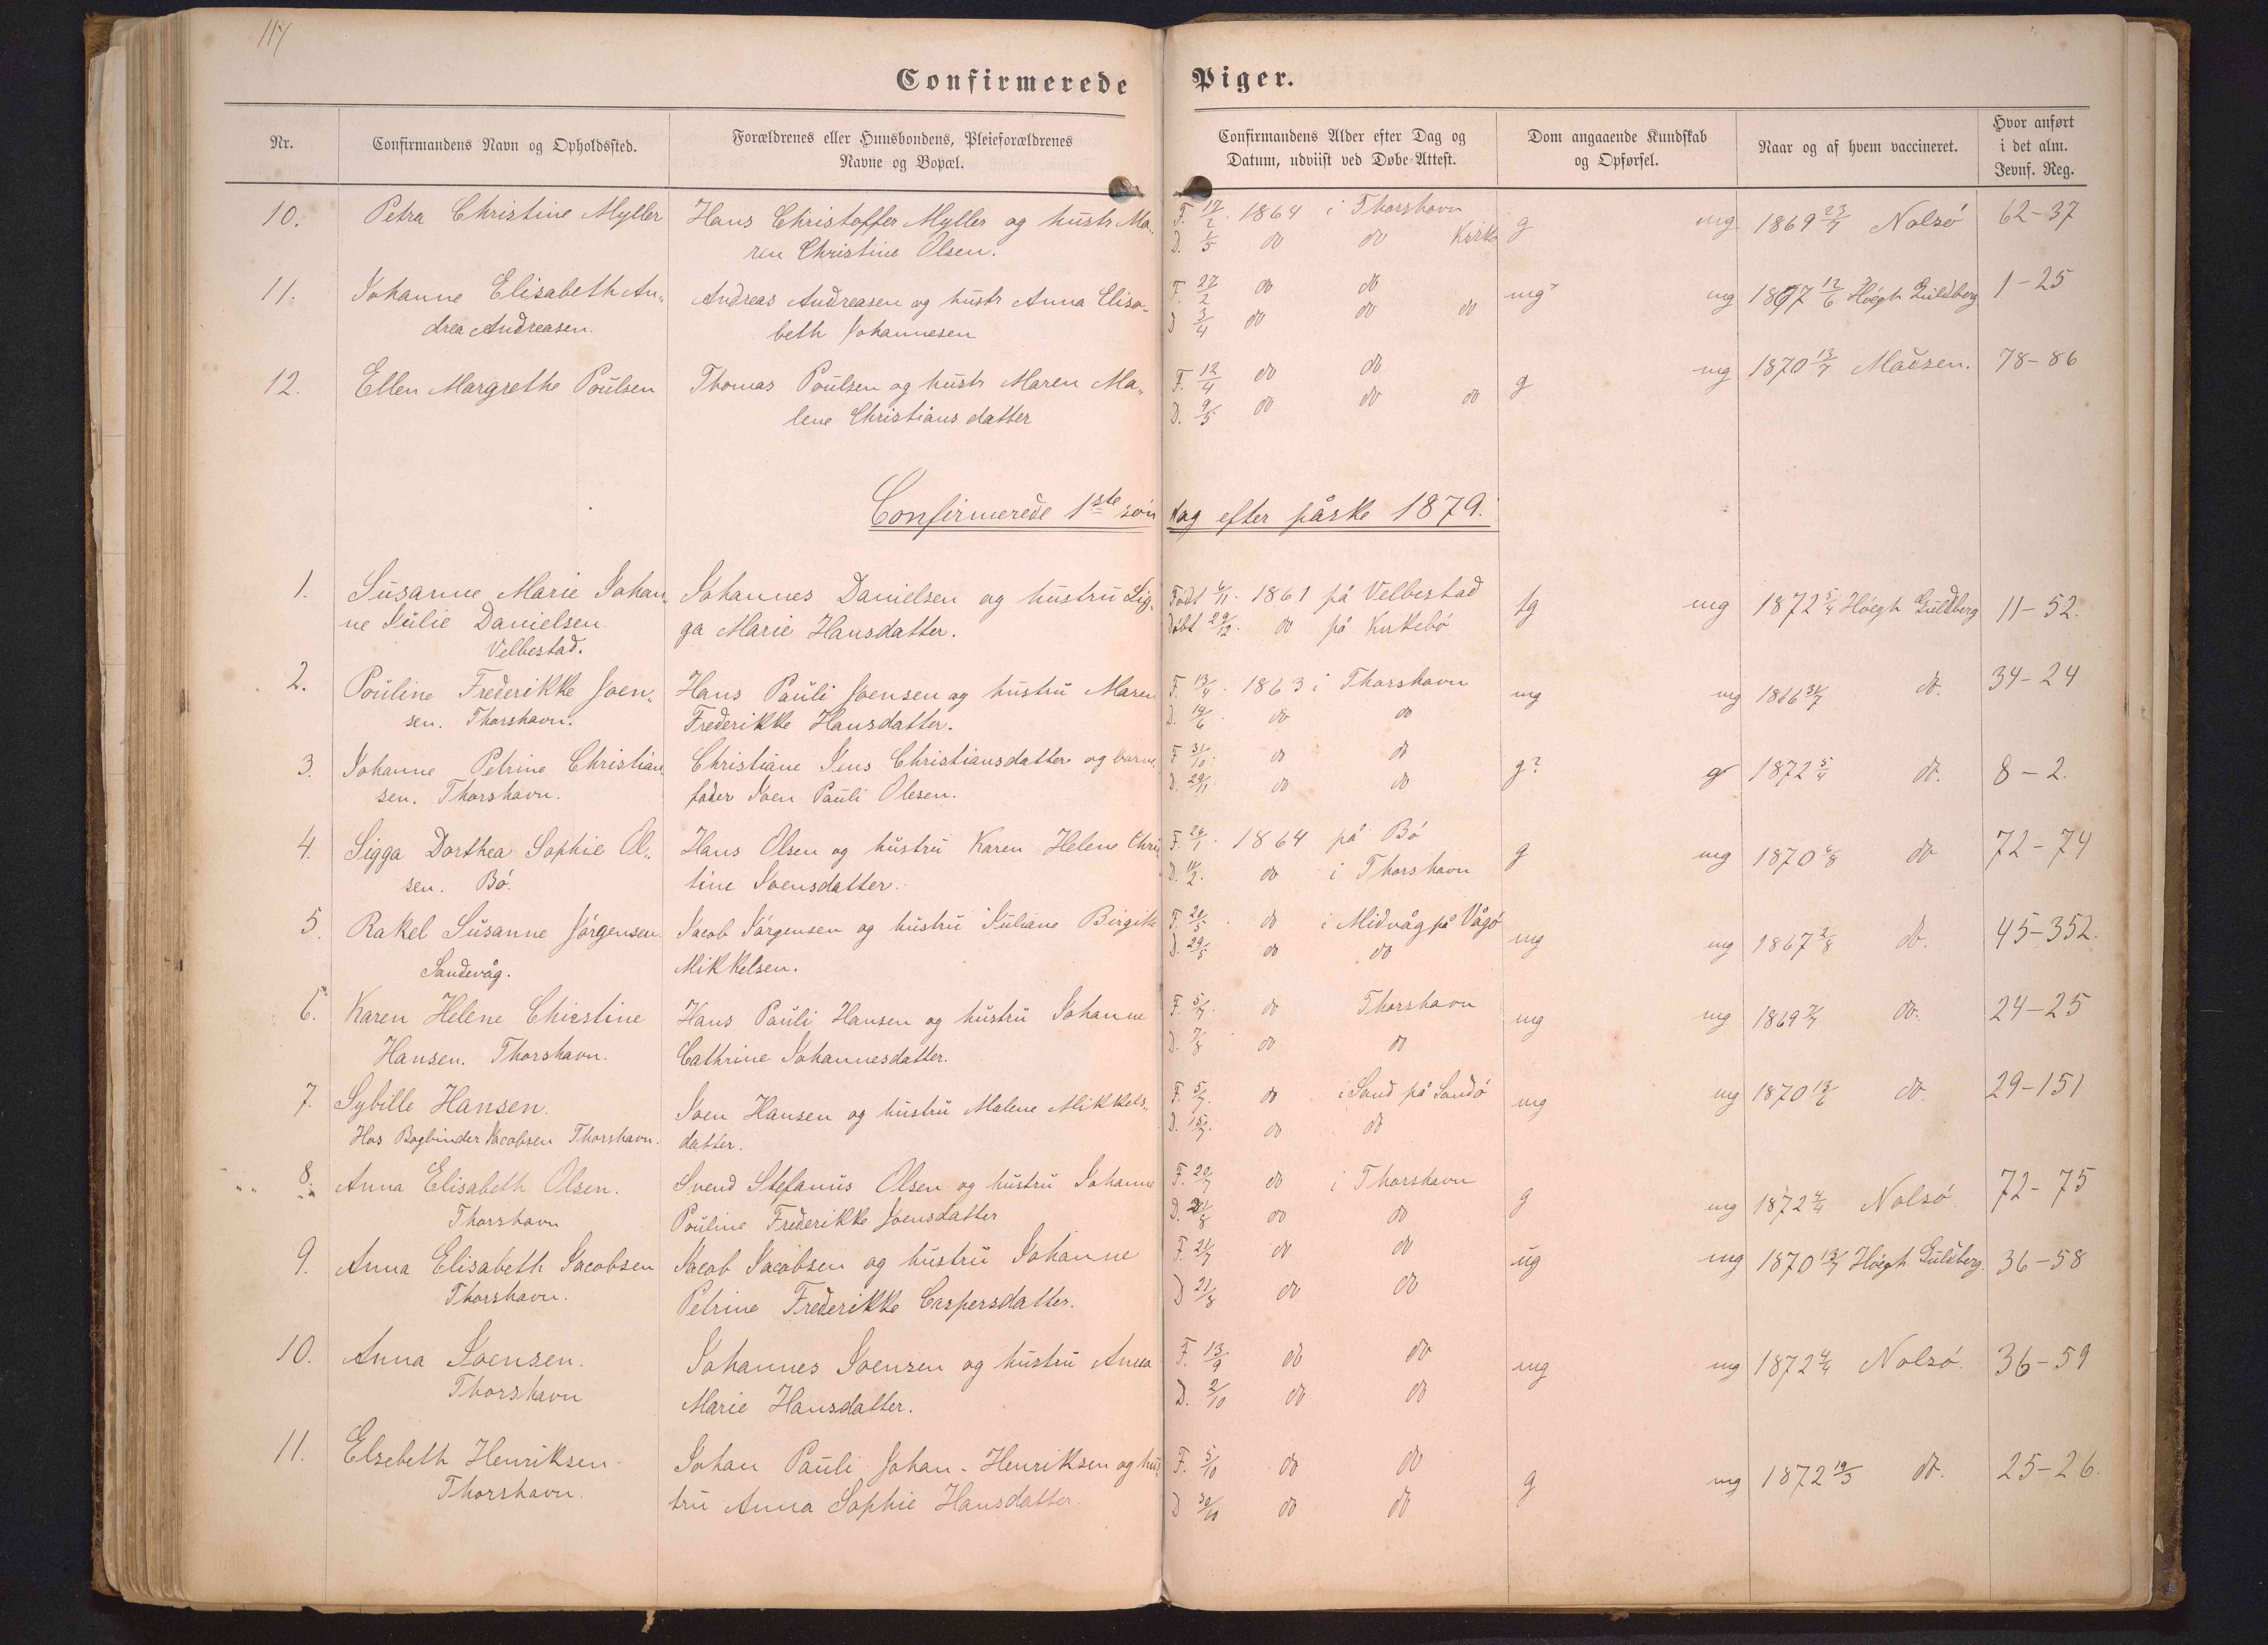 117
Confirmerede Piger.
Nr.
Confirmandens Navn og Opholdssted.
Forældrenes eller Huusbondens, Pleieforældrenes
Navne og Bopæl.
Confirmandens Alder efter Dag og
Datum, udviist ved Døbe-Attest.
Dom angaaende Kundskab
og Opførsel.
Naar og af hvem vaccineret.
Hvor anført
i det alm.
Jevnf. Reg.
10. Petra Christine Myller Hans Christoffer Myller og hustr Ma„ F. 1864 i Thorshavn g mg 1869 23/7 Nolsö 62-37
ren Christine Olsen. D. 1/5 do do Kirke
11. Johanne Elisabeth An„ Andreas Andreasen og hustr Anna Elisa- F. 27/2 do do mg mg 1867 12/6 Höegh Guldberg 1-25
drea Andreasen. beth Johannesen D 3/4 do do do
12. Ellen Margrethe Poulsen Thomas Poulsen og hustr Maren Ma„ F. 12/4 do do g mg 1870 13/7 Madsen. 78-86
lene Christiansdatter D. 9/5 do do do
Confirmerede 1ste söndag efter påske 1879.
1. Susanne Marie Johan„ Johannes Danielsen og hustru Sig„ Födt 6/11. 1861 på Velbestad tg mg 1872 5/4 Höegh Guldberg 11-52.
ne Julie Danielsen ga Marie Hansdatter. Döbt 29/12. do på Kirkebö
Velbestad.
2. Pouline Frederikke Joen„ Hans Pauli Joensen og hustru Maren F. 13/4. 1863 i Thorshavn mg mg 1866 31/7 do. 34-24
sen. Thorshavn. Frederikke Hansdatter. D. 14/6. do do
3. Johanne Petrine Christian„ Christiane Jens Christiansdatter og barne F 31/10. do do g? g 1872 5/4 do. 8-2.
sen. Thorshavn. fader Joen Pauli Olesen. D. 29/11. do do
4. Sigga Dorthea Sophie Ol„ Hans Olsen og hustru Karen Helene Chris F. 26/1. 1864 på Bö g mg 1870 do 72-74
sen. Bö. tine Joensdatter. D. do i Thorshavn
5. Rakel Susanne Jörgensen. Jacob Jörgensen og hustru Juliane Birgitte F. do i Midvåg på Vågö mg mg 1867 2/8 do. 45-352.
Sandevåg. Mikkelsen. D. 29/5 do do
6. Karen Helene Chirstine Hans Pauli Hansen og hustru Johanne F. 5/7. do Thorshavn mg mg 1869 do. 24-25
Hansen. Thorshavn. Cathrine Johannesdatter. D. 7/8 do do
7. Sybille Hansen. Joen Hansen og hustru Malene Mikkels„ F. 5/7. do i Sand på Sandö mg mg 1870 13/6 do. 29-151
Hos Bogbinder Jacobsen Thorshavn. datter. D. 15/7. do do
8. Anna Elisabeth Olsen. Svend Stefanus Olsen og hustru Johanne F. 20/7 do i Thorshavn g mg 1872 4/4 Nolsö. 72-75
Thorshavn Pouline Frederikke Joensdatter D. do do
9. Anna Elisabeth Jacobsen Jacob Jacobsen og hustru Johanne F. 21/7 do do ug mg 1870 13/7 Höegh Guldberg. 36-58
Thorshavn. Petrine Frederikke Caspersdatter. D 21/8 do do
10. Anna Joensen. Johannes Joensen og hustru Anna F. 13/9 do do mg mg 1872 4/4 Nolsö. 36-59
Thorshavn Marie Hansdatter. D. 2/10 do do
11. Elsebeth Henriksen. Johan Pauli Johan-Henriksen og hus„ F. 5/10 do do g mg 1872 19/3 do. 25-26.
Thorshavn. tru Anna Sophie Hansdatter. D 30/10 do do